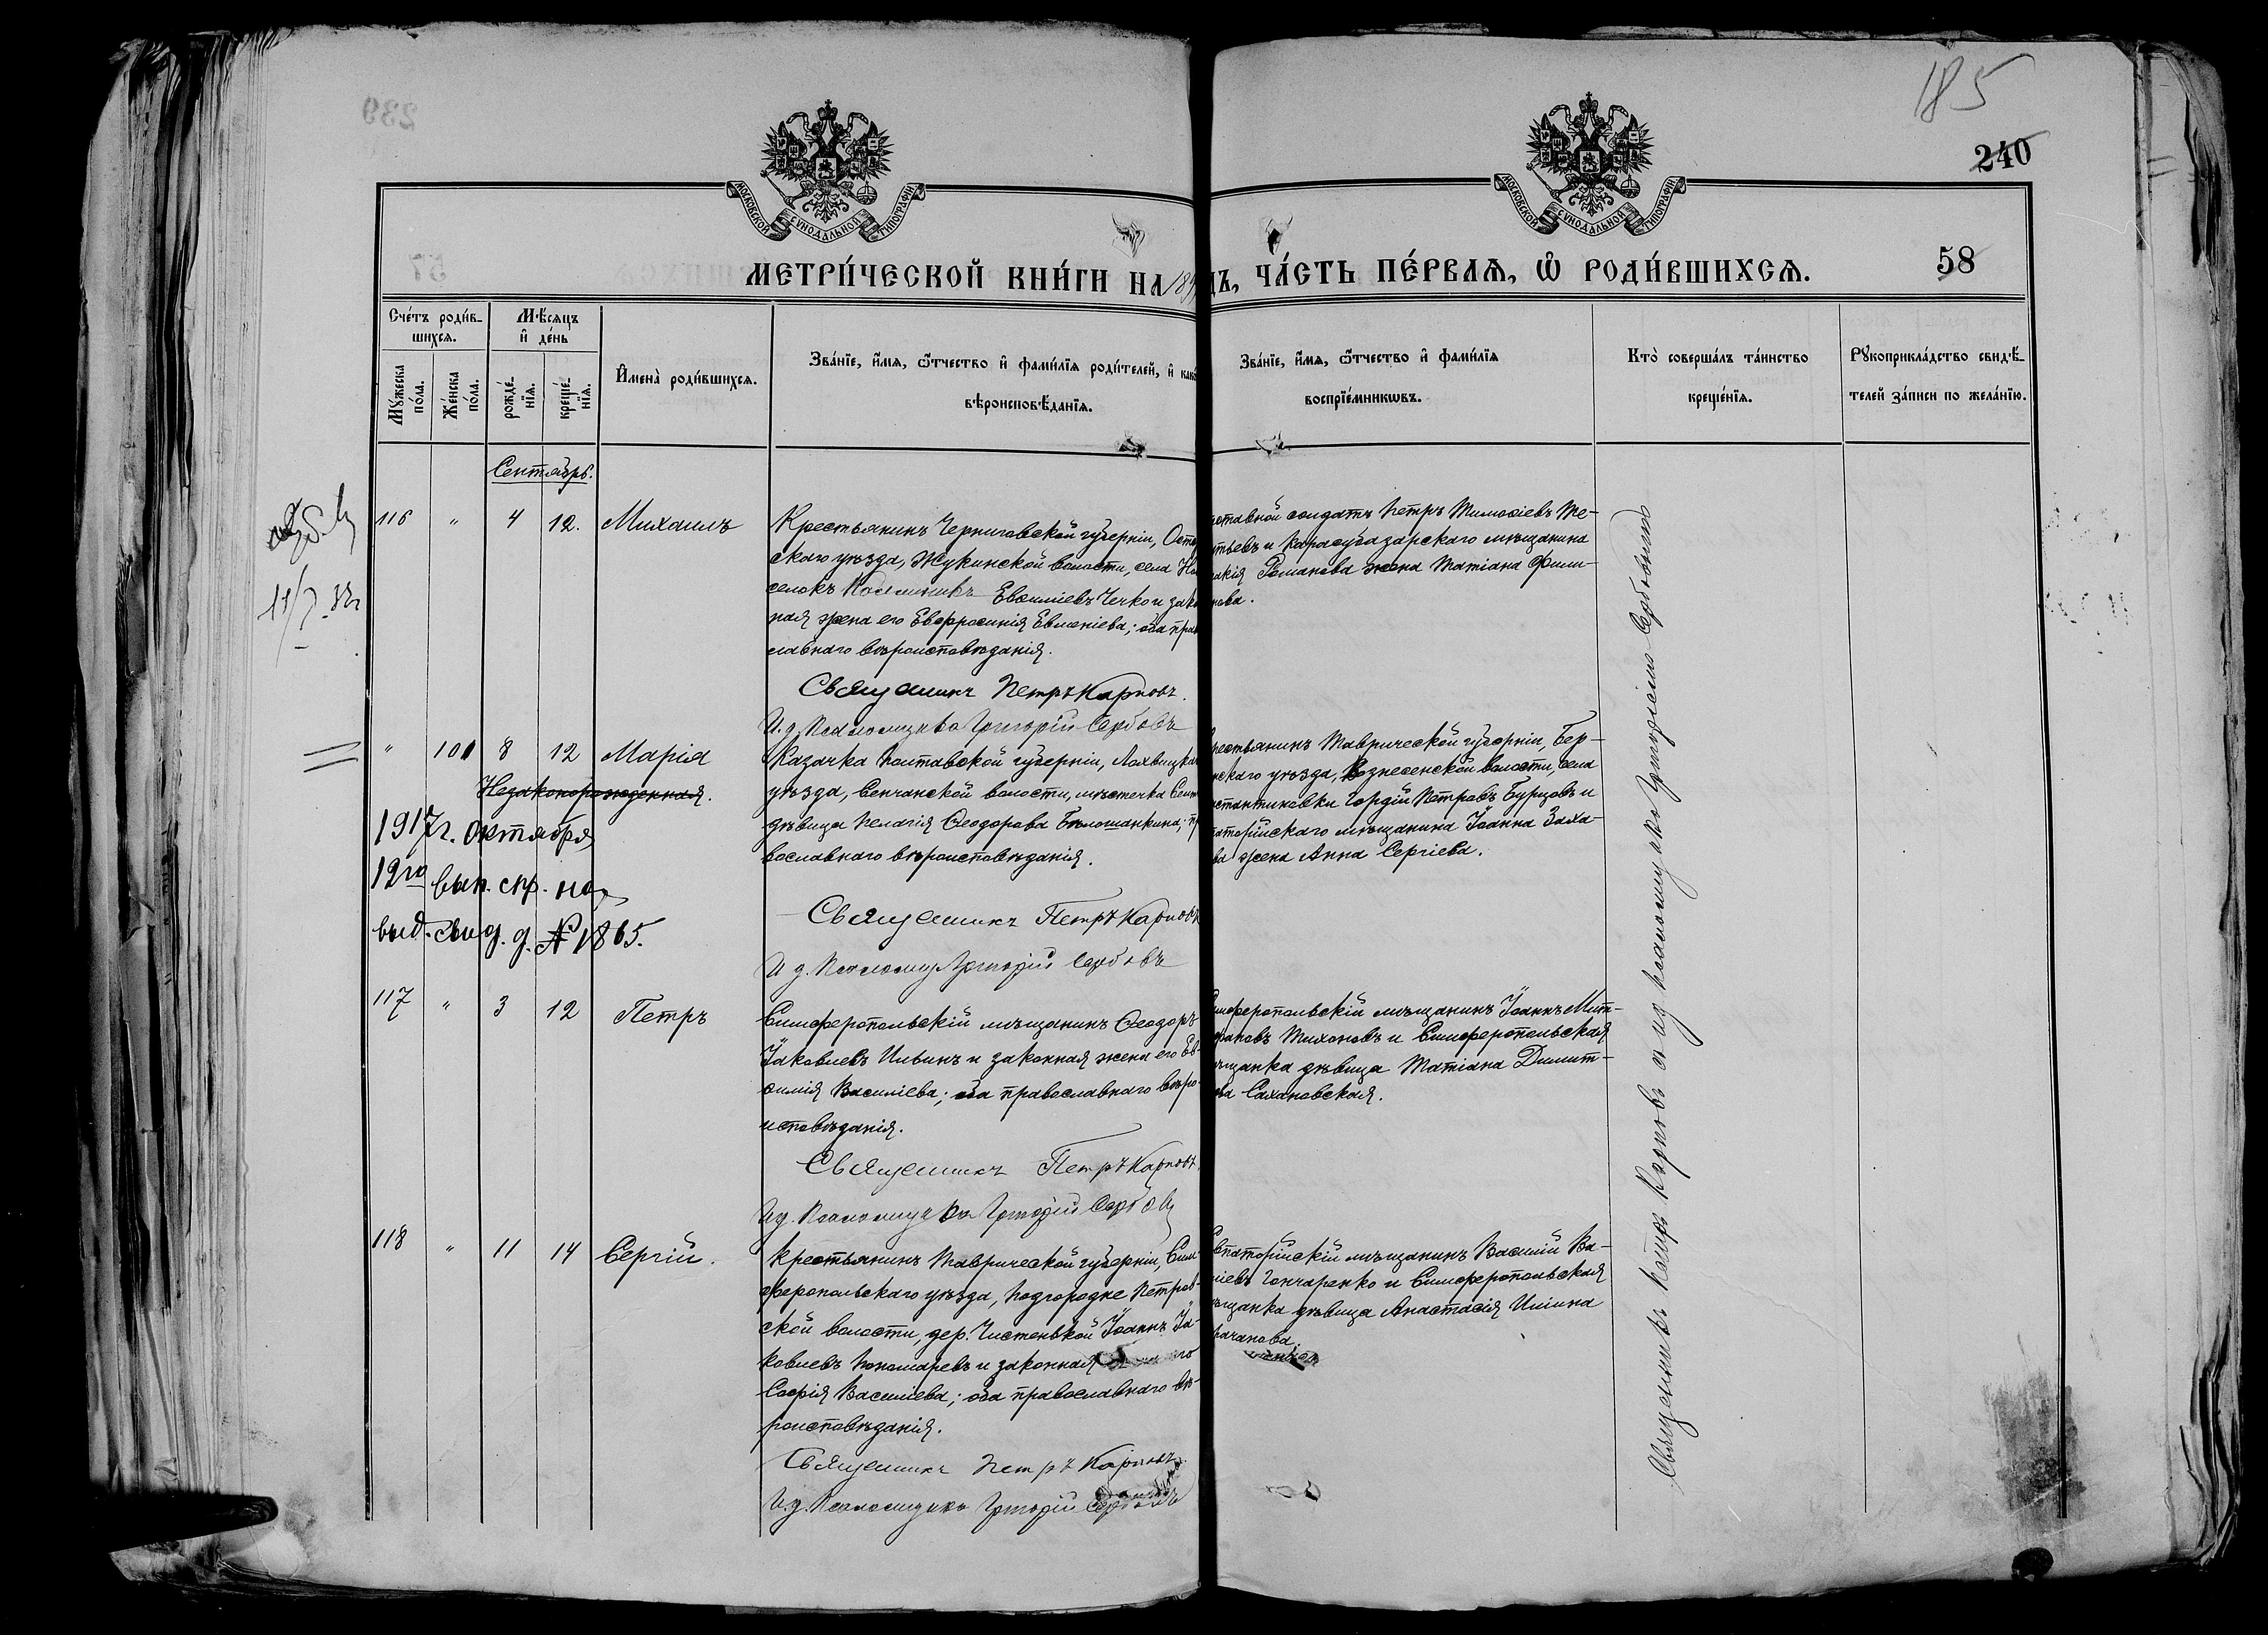 185
240
58
МОСКОВСКОЙ СѴНОДАЛЬНОЙ ТИПОГРАФІИ
МОСКОВСКОЙ СѴНОДАЛЬНОЙ ТИПОГРАФІИ
МЕТРИ́ЧЕСКОЙ КНИ́ГИ НА 18
ДЪ, ЧА́СТЬ ПЕ́РВАѦ, Ѿ РОДИ́ВШИХСѦ.
Сче́тъ роди́в-
шихсѧ.
Мꙋ́жеска по́ла.
Же́нска по́ла.
Мѣ́сѧцъ и҆ де́нь
рожде́-нїѧ.
креще́-нїѧ.
И҆мена̀ роди́вшихсѧ.
Зва́нїе, и҆́мѧ, ѻ҆́тчество и҆ фами́лїѧ роди́телей, и҆ како
вѣроисповѣ́данїѧ.
Зва́нїе, и҆́мѧ, ѻ҆́тчество и҆ фами́лїѧ
воспрїе́мникѡвъ.
Кто̀ соверша́лъ та́инство
креще́нїѧ.
Рꙋкоприкла́дство свидѣ́-
телей за́писи по жела́нїю.
Сентябрь.
116 " 4 12. Михаилъ
Крестьянинъ Черниговской губерніи, Осте
скаго уѣзда, Жукинской волости, села Но
селокъ Евѳиміевъ Чечко и зако
ная жена его Евфросинія Евменіева; оба прав
славнаго вѣроисповѣданія.
Священникъ Петръ Карповъ.
И. д. Псаломщика Григорій Сербовъ
тставной солдатъ Петръ Тимоѳіевъ Те-
тьевъ и Карасубазарскаго мѣщанина
акія Романова жена Татіана Фили-
нова.
11/7.32г
" 101 8 12 Марія
Незаконорожденная.
1917г. октября
12го вып. спр. на
выд. свид. д. № 1865.
Казачка Полтавской губерніи, Лохвицка
уѣзда, Сенчанской волости, мѣстечка Сент
дѣвица Пелагія Ѳеодорова Бѣлошапкина; пр
вославнаго вѣроисповѣданія.
Священникъ Петръ Карповъ
И д. Псаломщ Григорій Сербовъ
рестьянинъ Таврической губерніи, Бер-
нскаго уѣзда, Вознесенской волости, села
стантиновки Гордій Петровъ Бурцовъ и
аторійскаго мѣщанина Іоанна Заха-
ва жена Анна Сергіева.
117 " 3 12 Петръ
Симферопольскій мѣщанинъ Ѳеодоръ
Іаковлевъ Ильинъ и законная жена его Ев-
ѳимія Василіева; оба православнаго вѣро-
исповѣданія.
Священникъ Петръ Карповъ.
И д. Псаломщика Григорій Сербовъ
имферопольскій мѣщанинъ Іоаннъ Мит-
фановъ Тихоновъ и Симферопольская
ѣщанка дѣвица Татіана Димит-
ва Сахановская.
118 " 11 14 Сергій.
Крестьянинъ Таврической губерніи, Сим-
феропольскаго уѣзда, Подгородне Петров-
ской волости, дер. Чистенькой Іоаннъ Іа-
ковлевъ Пономаревъ и законная его
Софія Василіева; оба православнаго вѣ-
роисповѣданія.
Священникъ Петръ Карповъ
И. д. Псаломщика Григорій Сербовъ
Евпаторійскій мѣщанинъ Василій Ва-
ліевъ Гончаренко и Симферопольская
ѣщанка дѣвица Анастасія Иліина
Священникъ Петръ Карповъ и и д псаломщика Григоріемъ Сербовымъ